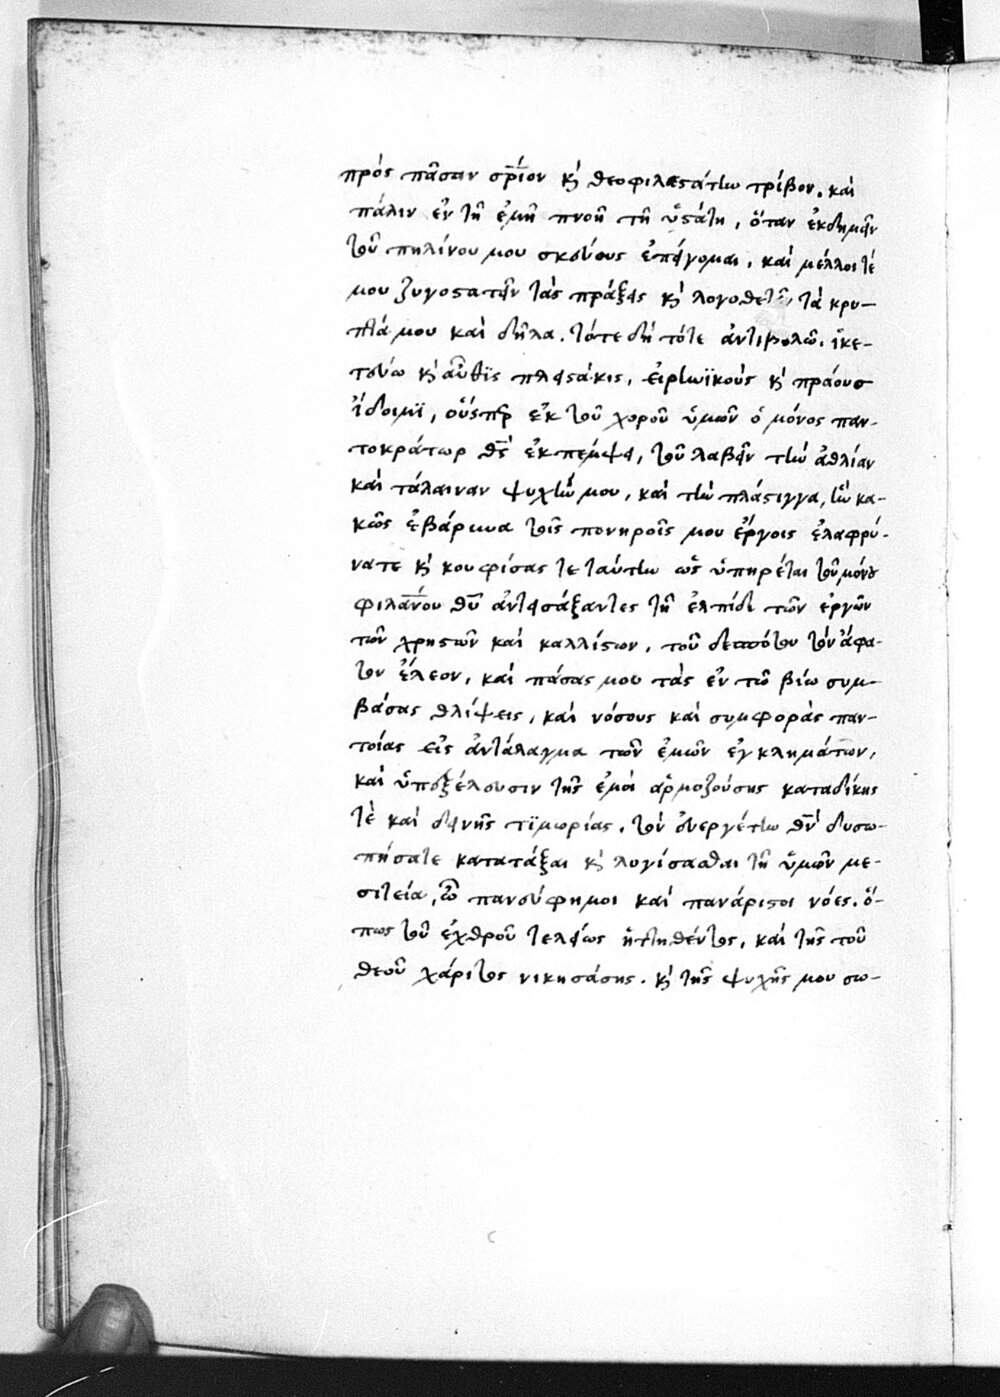 πρὸς πᾶσαν σ̅ρ̅ιον κὶ θεοφιλεστάτην τρίβον. καὶ
πάλιν ἐν τῇ ἐμῇ πνοῇ τῇ ὑστάτῃ, ὅταν ἐκδημεῖν
τοῦ πηλίνου μου σκεύους ἐπείγομαι, καὶ μέλλοι τέ
μου ζυγοστατεῖν τὰς πράξεις κὶ λογοθετεῖν τὰ κρυ-
πτά μου καὶ δῆλα. τότε δὴ τότε ἀντιβολῶ. ἱκε-
τεύω κὶ αὖθϊς πλειστάκις, εἰρηνϊκοὺς κὶ πράους
ἴδοιμϊ, οὕσπερ ἐκ τοῦ χοροῦ ὑμῶν ὁ μόνος παν-
τοκράτωρ θ̅ς̅ ἐκπέμψει, τοῦ λαβεῖν τὴν ἀθλίαν
καὶ τάλαιναν ψυχήν μου, καὶ τὴν πλάστιγγα, ἣν κα-
κῶς ἐβάρυνα τοῖς πονηροῖς μου ἔργοις ἐλαφρύ-
νατε κὶ κουφίσας τε ταύτην ὡς ὑπηρέται τοῦ μόνου
φιλα̅ν̅ου θ̅υ̅ ἀντεισάξαντες τῇ ἐλπίδι τῶν ἔργων
τῶν χρηστῶν καὶ καλλίστων, τοῦ δεσπότου τὸν ἄφα-
τον ἔλεον, καὶ πάσας μου τὰς ἐν τῶ βίω συμ-
βάσας θλίψεις, καὶ νόσους καὶ συμφορὰς παν-
τοίας εἰς ἀντάλαγμα τῶν ἐμῶν ἐγκλημάτων,
καὶ ὑπεξέλουσιν τῆς ἐμοὶ ἁρμοζούσης καταδίκης
τὲ καὶ δεινῆς τϊμωρίας. τὸν εὐεργέτην θ̅ν̅ δυσω-
πήσατε κατατάξαι κὶ λογίσασθαι τῇ ὑμῶν με-
σιτεία, ὦ πανεύφημοι καὶ πανάριστοι νόες. ὅ-
πως τοῦ ἐχθροῦ τελείως ἡττηθέντος, καὶ τῆς τοῦ
θεοῦ χάριτος νικησάσης. κὶ τῆς ψυχῆς μου σω-